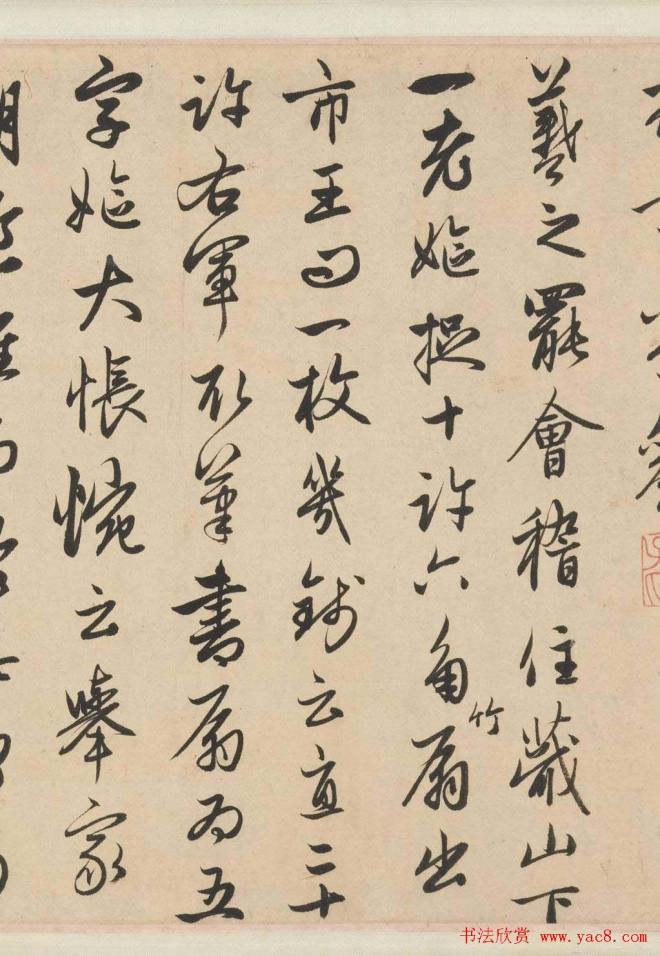 羲之罷會稽住蕺山下
一老嫗捉十許六角竹扇出
市王問一枚幾錢云直二十
許右軍取筆書扇為五
字嫗大悵惋云舉家
书法欣赏 www.yac8.com